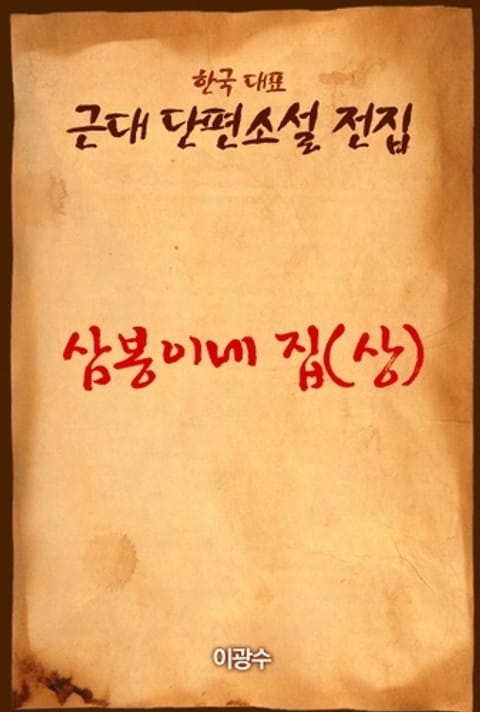 한국 대표
근대 단편소설 전집
삼봉이네 집(상)
이광수